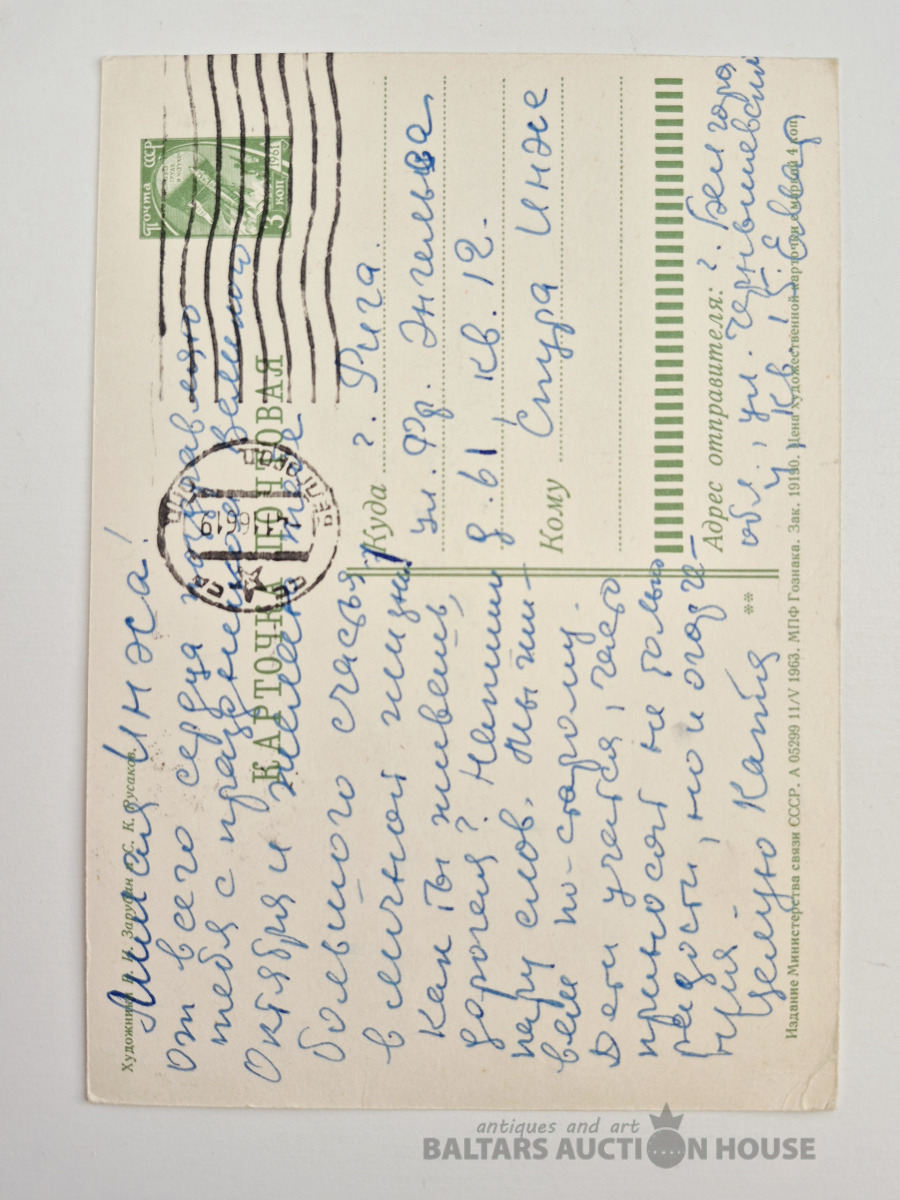 Художники В. И. Зарубин и С. К. Русаков.
Милая Инжа!
от всего сердца поздравляю
тебя с праздником великого
Октября и желаю тебе
большого счастья
в личной жизни.
Как ты живешь,
дорогая? Напиши
пару слов. Мы жи-
вем по-старому.
Дети учатся, часто
приносят не только
радости, но и огорче-
ния.
Целую Катя
КАРТОЧКА ПОЧТОВАЯ
Почта СССР
3 коп
1961
Куда
г. Рига.
ул. Фр. Энгельса
д. 61 кв. 12.
Кому
Спура Инже
Адрес отправителя:
г. Белгород
обл., ул. Чернышевский
**
Издание Министерства связи СССР. А 05299 11/V 1963. МПФ Гознака. Зак. 19130. Цена художественной карточки с маркой 4 коп.
antiques and art
BALTARS AUCTION HOUSE